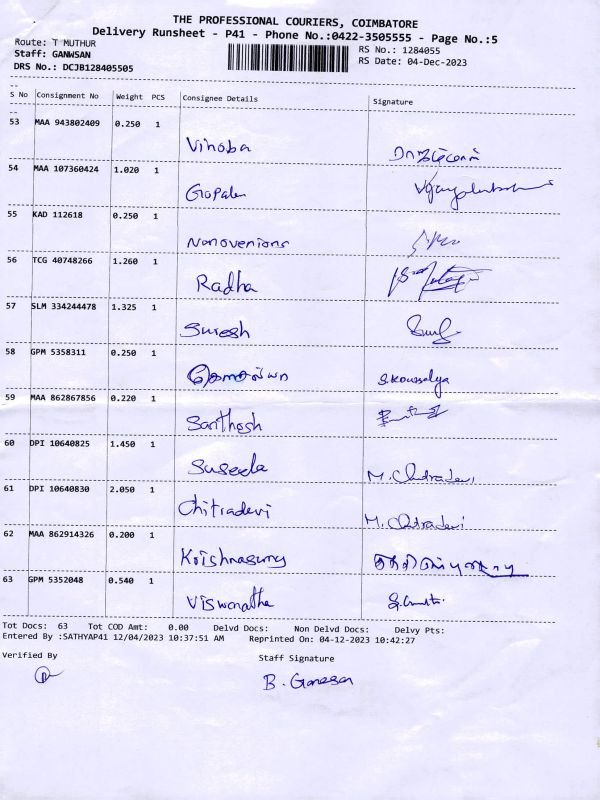 THE PROFESSIONAL COURIERS, COIMBATORE
Delivery Runsheet - P41 - Phone No.:0422-3505555 - Page No.:5
Route: T MUTHUR RS No.: 1284055
Staff: GANWSAN RS Date: 04-Dec-2023
DRS No.: DCJB128405505
S No Consignment No Weight PCS Consignee Details Signature
53 MAA 943802409 0.250 1
Vinoba
54 MAA 107360424 1.020 1
Gopalan
55 KAD 112618 0.250 1
Nonovenions
56 TCG 40748266 1.260 1
Radha
57 SLM 334244478 1.325 1
Suresh
58 GPM 5358311 0.250 1
கௌசல்யா S.Kousalya
59 MAA 862867856 0.220 1
Santhosh
60 DPI 10640825 1.450 1
Suseela M. Chitradevi
61 DPI 10640830 2.050 1
Chitradevi M. Chitradevi
62 MAA 862914326 0.200 1
Krishnasamy
63 GPM 5352048 0.540 1
Viswanatha
Tot Docs: 63 Tot COD Amt: 0.00 Delvd Docs: Non Delvd Docs: Delvy Pts:
Entered By :SATHYAP41 12/04/2023 10:37:51 AM Reprinted On: 04-12-2023 10:42:27
Verified By Staff Signature
B. Ganesan